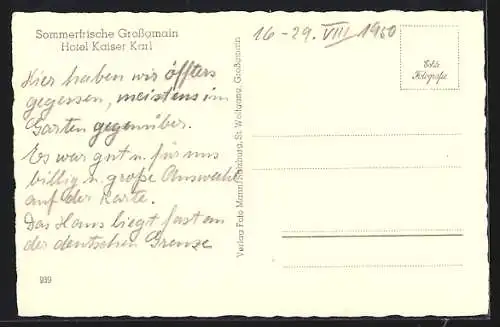 Sommerfrische Großgmain
Hotel Kaiser Karl
16 - 29. VIII 1960
Echte
Fotografie
Hier haben wir öffters
gegessen, meistens im
Garten gegenüber.
Es war gut u. für uns
billig u. große Auswahl
auf der Karte.
Das Haus liegt fast an
der deutschen Grenze
Verlag Foto Mann, Salzburg, St. Wolfgang, Großgmain
939